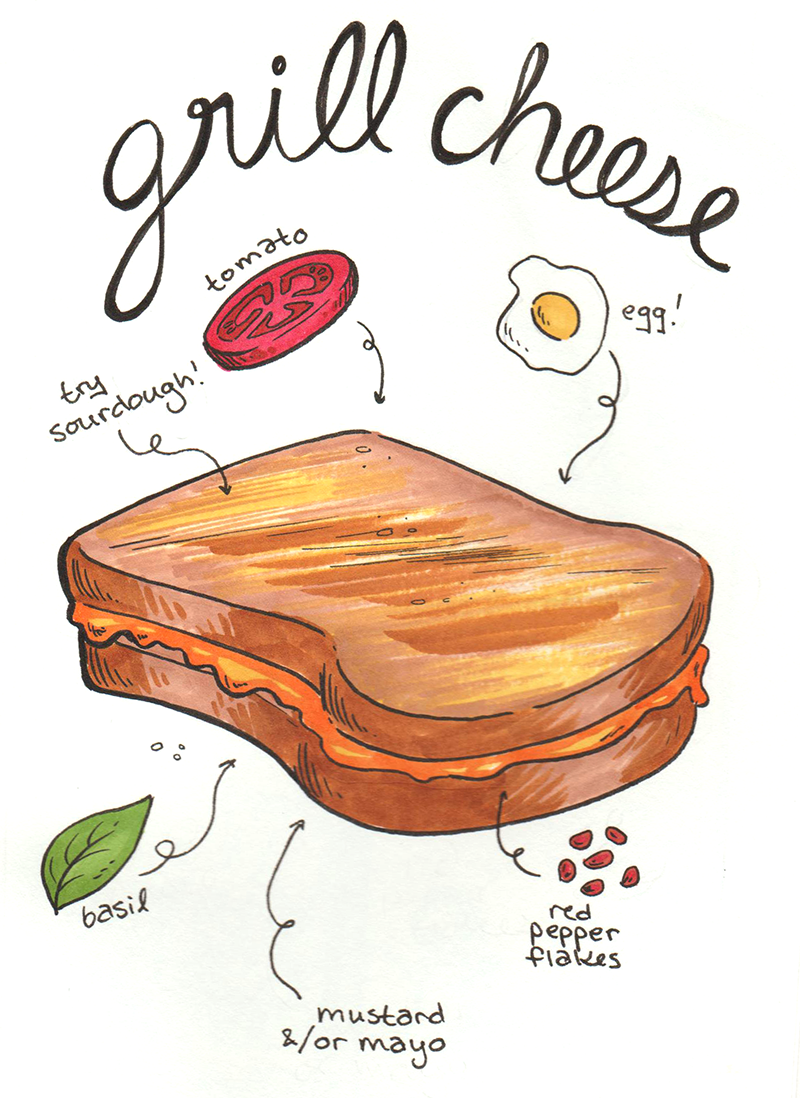 grill cheese
tomato
egg!
try
sourdough!
basil
red
pepper
flakes
mustard
&/or mayo